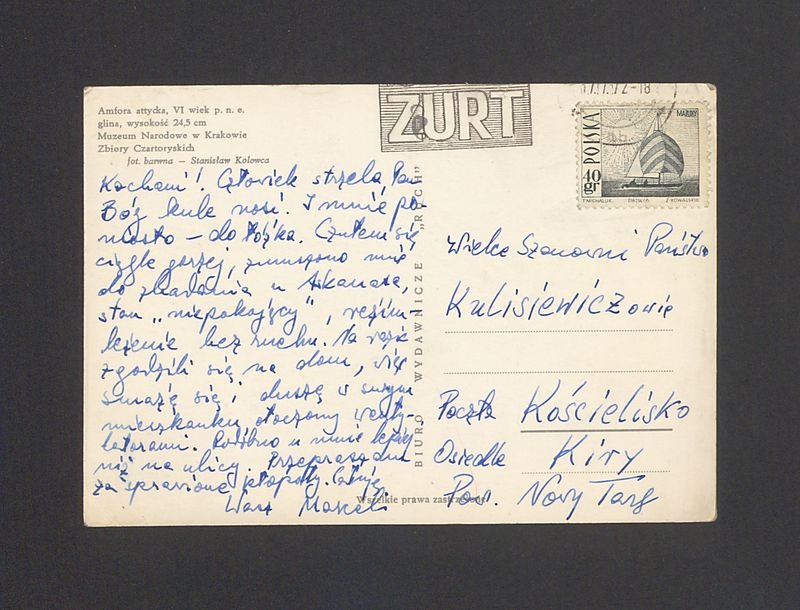 Amfora attycka, VI wiek p. n. e.
glina, wysokość 24,5 cm
Muzeum Narodowe w Krakowie
Zbiory Czartoryskich
fot. barwna — Stanisław Kolowca
Kochani! Człowiek strzela, Pan
Bóg kule nosi. I mnie po
niosło — do łóżka. Czułem się
ciągle gorzej, zmuszono mnie
do zbadania u Askanasa,
stan „niepokojący", reżim –
leżenie bez ruchu. Na razie
zgodzili się na dom, więc
smażę się i duszę w swym
mieszkanku, otoczony wenty-
latorami. Podobno u mnie lepiej
niż na ulicy. Przepraszam
za sprawione kłopoty.
Wasz Marceli
BIURO WYDAWNICZE „RUCH"
Wszelkie prawa zastrzeżone
ZURT
POLSKA
MAZURY
40 gr
T. MICHALUK
Wielce Szanowni Państwo
Kulisiewiczowie
Poczta Kościelisko
Osiedle Kiry
Pow. Nowy Targ